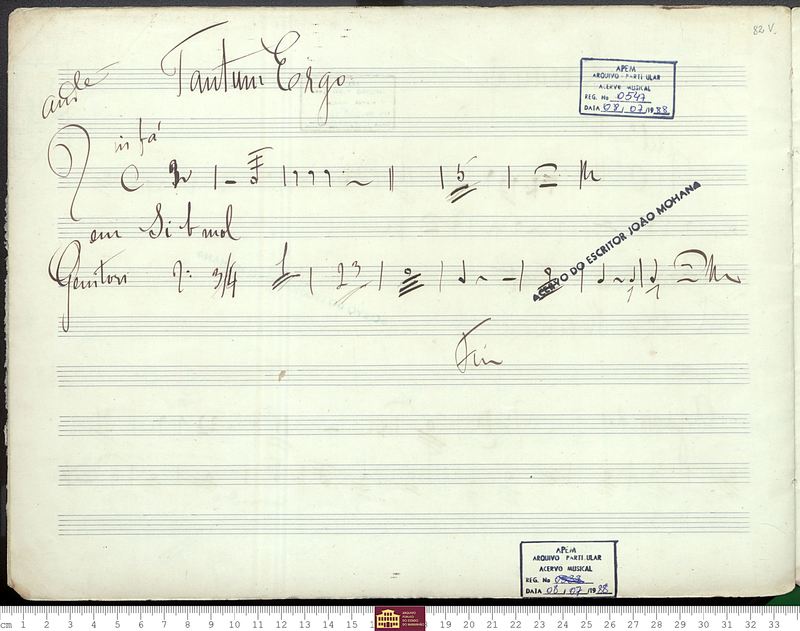 82 V.
andé Tantum Ergo
APEM
ARQUIVO PARTICULAR
ACERVO MUSICAL
REG. No 0547
DATA 08, 07/1988
in fá
C 5
ACERVO DO ESCRITOR JOÃO MOHANA
em Si b mol
Genitori 3/4 1 23 8
Fin
APEM
ARQUIVO PARTICULAR
ACERVO MUSICAL
REG. No
DATA 08, 07/1988
cm 1 2 3 4 5 6 7 8 9 10 11 12 13 14 15 19 20 21 22 23 24 25 26 27 28 29 30 31 32 33